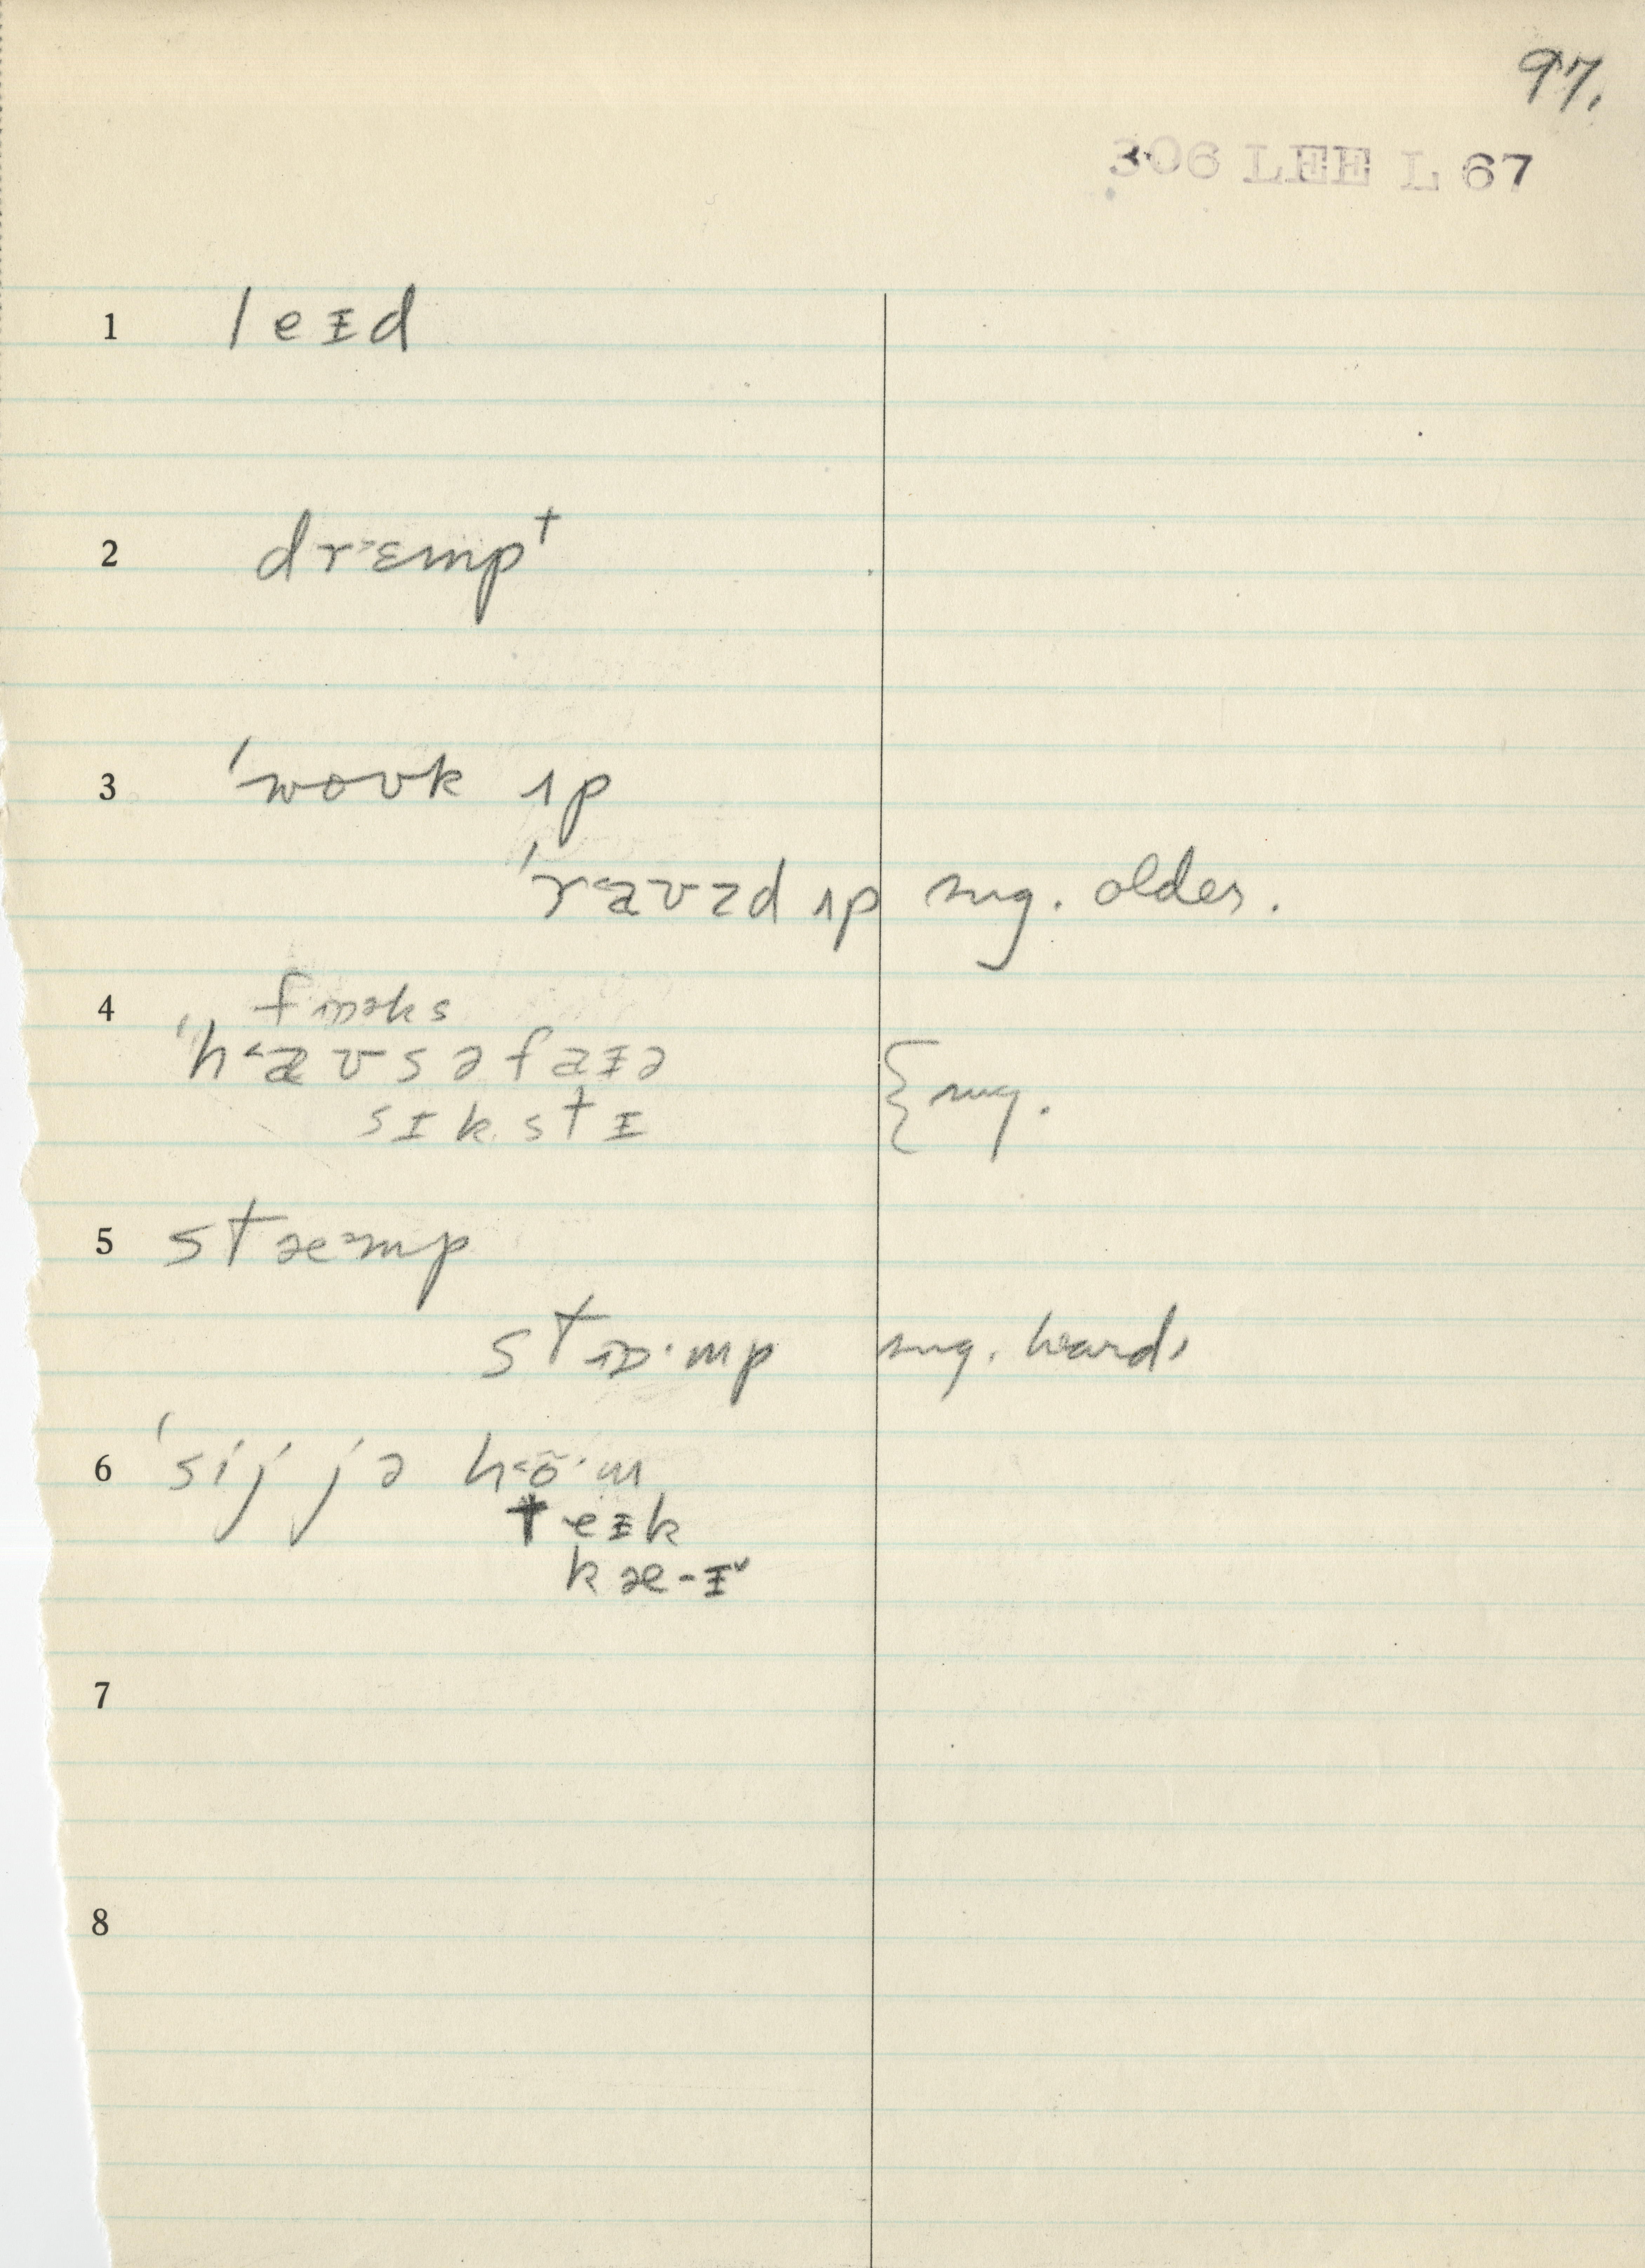 97.
306 LEE L 67
1 leɪd
2 dr˃ɛmpᵗ
3 ˈwoʊk ʌp
ˈr˂aʊzd ʌp sug. older.
4 fɒəks
ˈh˂aʊsəfaɪə { sug.
sɪkstɪ
5 stæ˃mp
stɒ·mp sug. heard.
6 ˈsij jə h˂õ·m
teɪk
kæ-ɪ˅
7
8